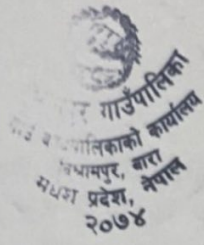 गाउँपालिका
गाउँ कार्यपालिकाको कार्यालय
बारा
मधेश प्रदेश, नेपाल
२०७४